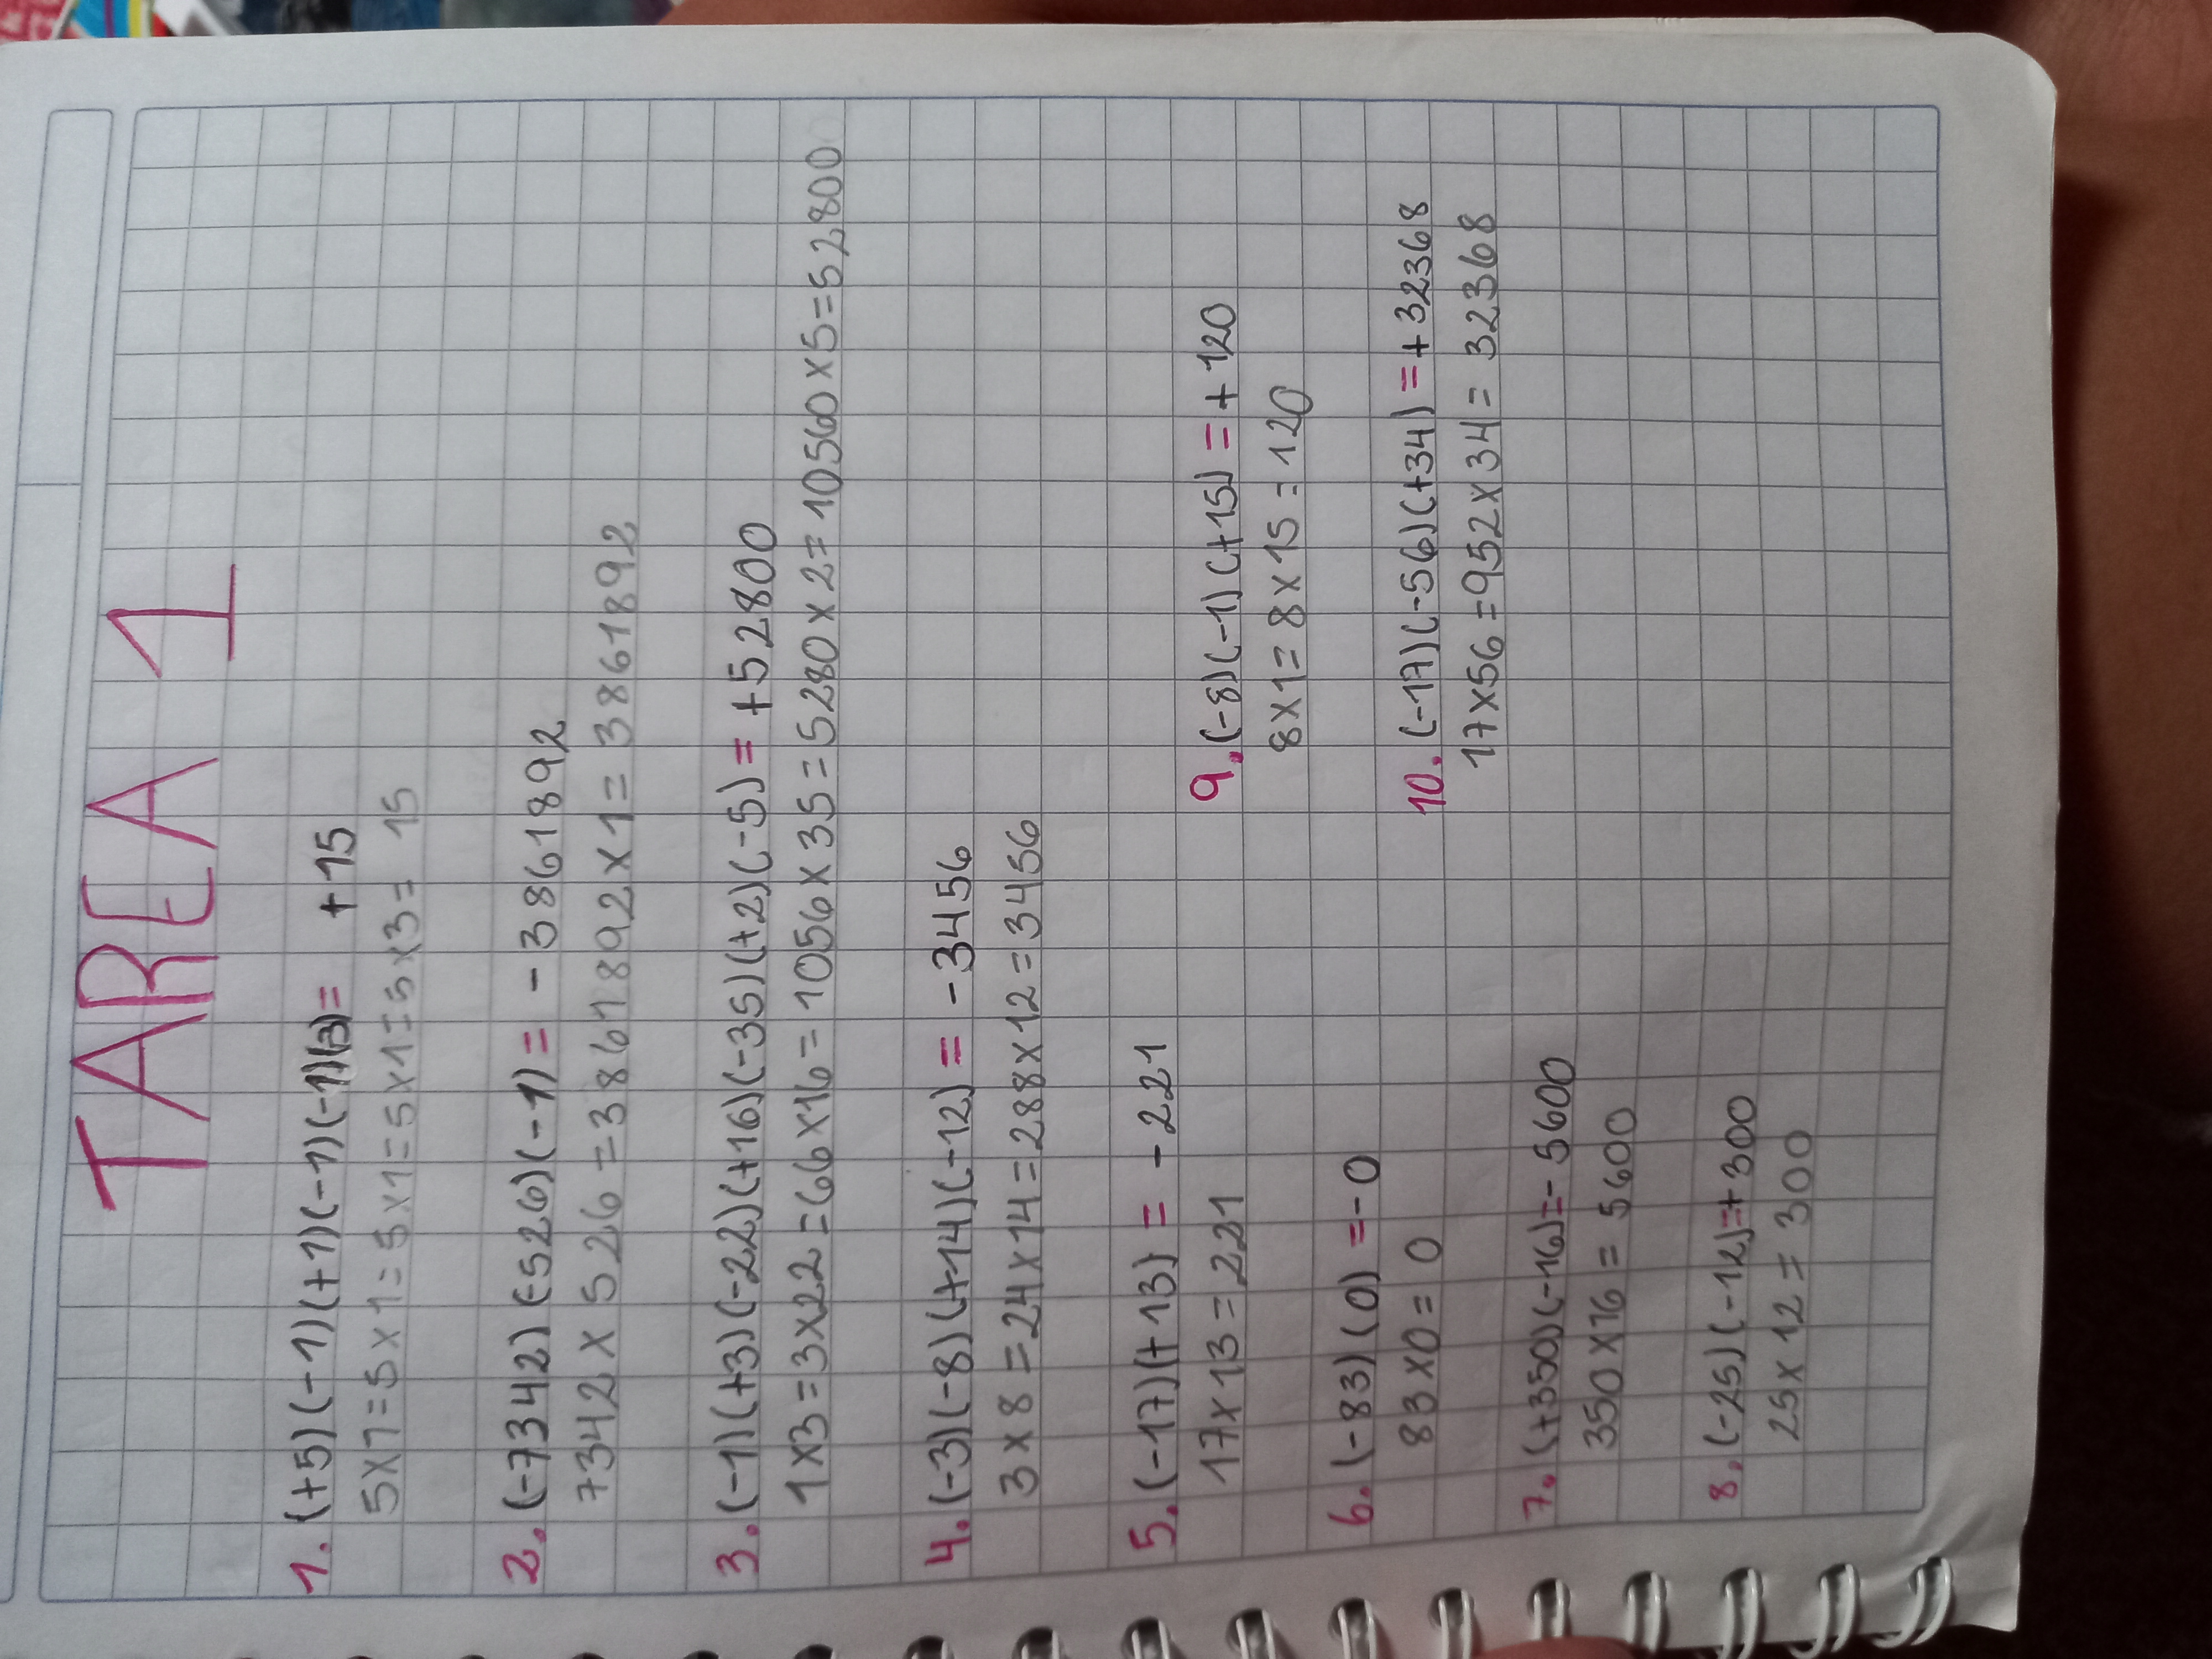 TAREA 1
1. (+5)(-1)(+1)(-1)(-1)(3)= +15
5x1=5x1=5x1=5x1=5x3= 15
2. (-7342)(-526)(-1)= -3861892
7342 x 526 =3861892x1=3861892
3. (-1)(+3)(-22)(+16)(-35)(+2)(-5)= +52800
1x3=3x22=66x16=1056x35=5280x2=10560x5=52800
4. (-3)(-8)(+14)(-12)= -3456
3x8=24x14=288x12=3456
5. (-17)(+13)= -221
17x13=221
6. (-83)(0)=-0
83x0=0
7. (+350)(-16)=-5600
350x16= 5600
8. (-25)(-12)=+300
25x12=300
9. (-8)(-1)(+15)=+120
8x1=8x15=120
10. (-17)(-56)(+34)=+32368
17x56=952x34= 32368